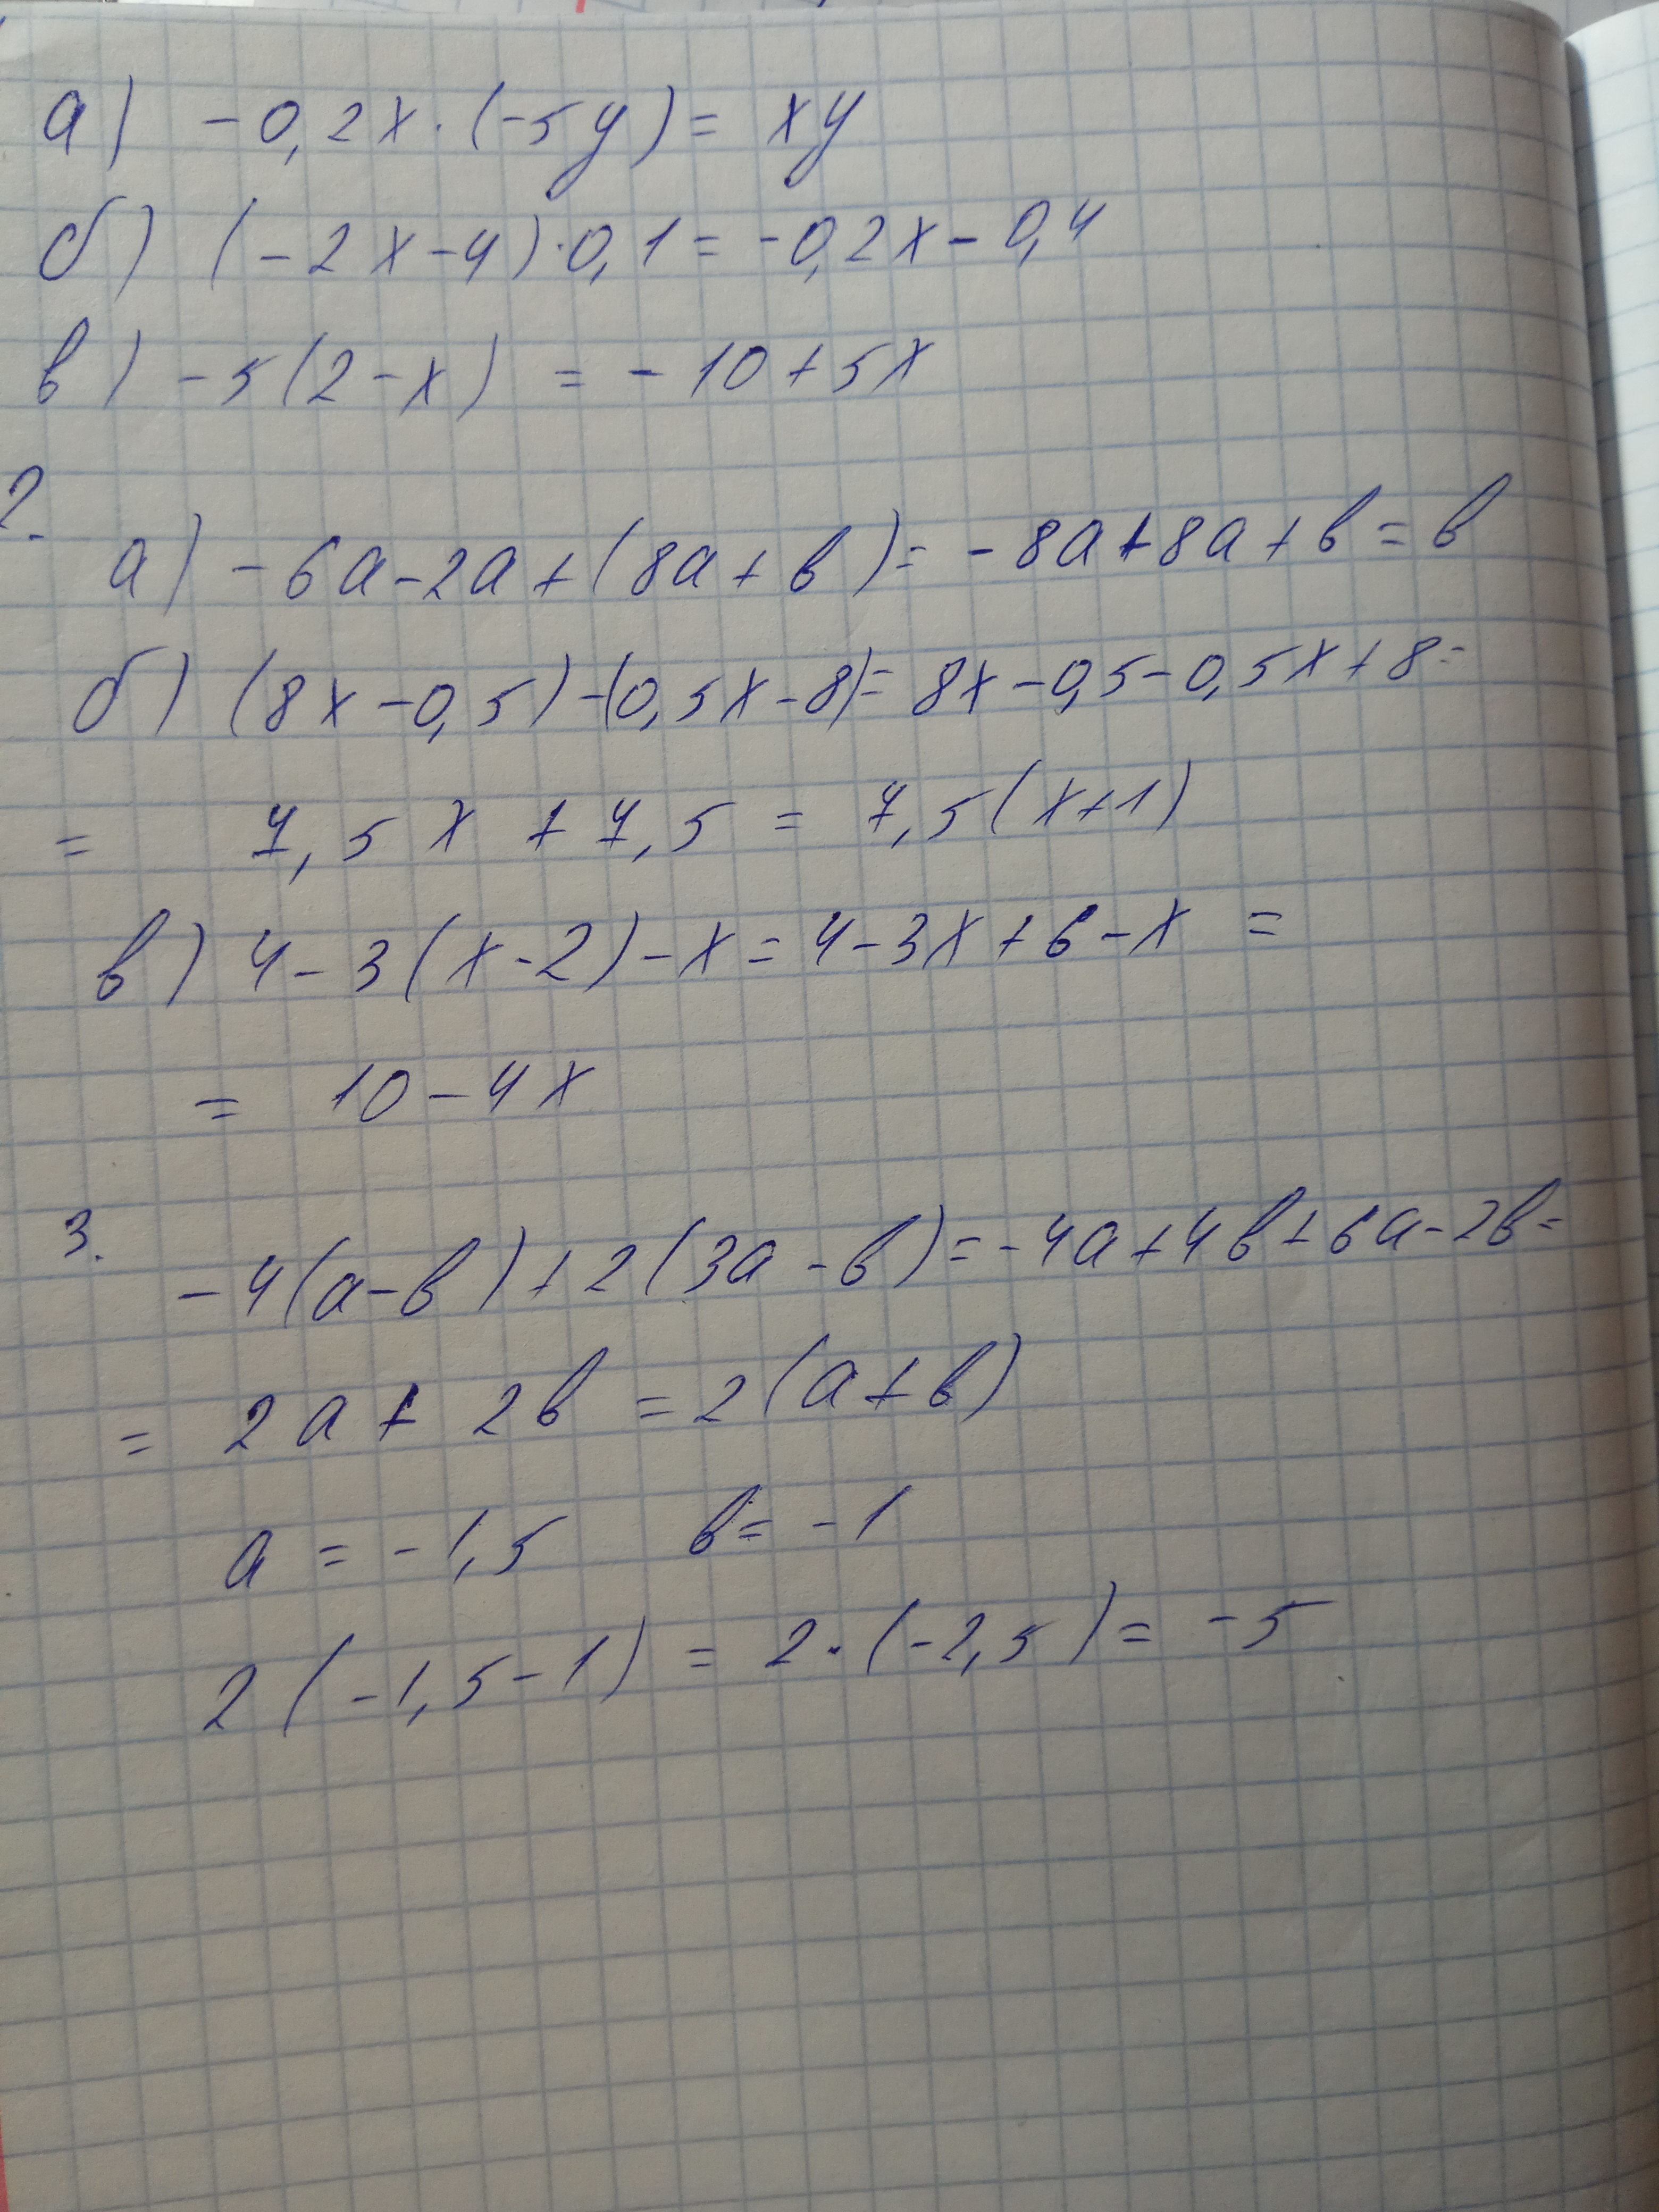 а) -0,2x·(-5y)= xy
б) (-2x-4)·0,1= -0,2x-0,4
в) -5(2-x) = -10+5x
2.
а) -6a-2a+(8a+b)= -8a+8a+b=b
б) (8x-0,5)-(0,5x-8)= 8x-0,5-0,5x+8=
= 7,5x+7,5 = 7,5(x+1)
в) 4-3(x-2)-x=4-3x+6-x =
= 10-4x
3.
-4(a-b)+2(3a-b)=-4a+4b+6a-2b=
= 2a+2b =2(a+b)
a = -1,5 b= -1
2(-1,5-1) = 2·(-2,5)= -5